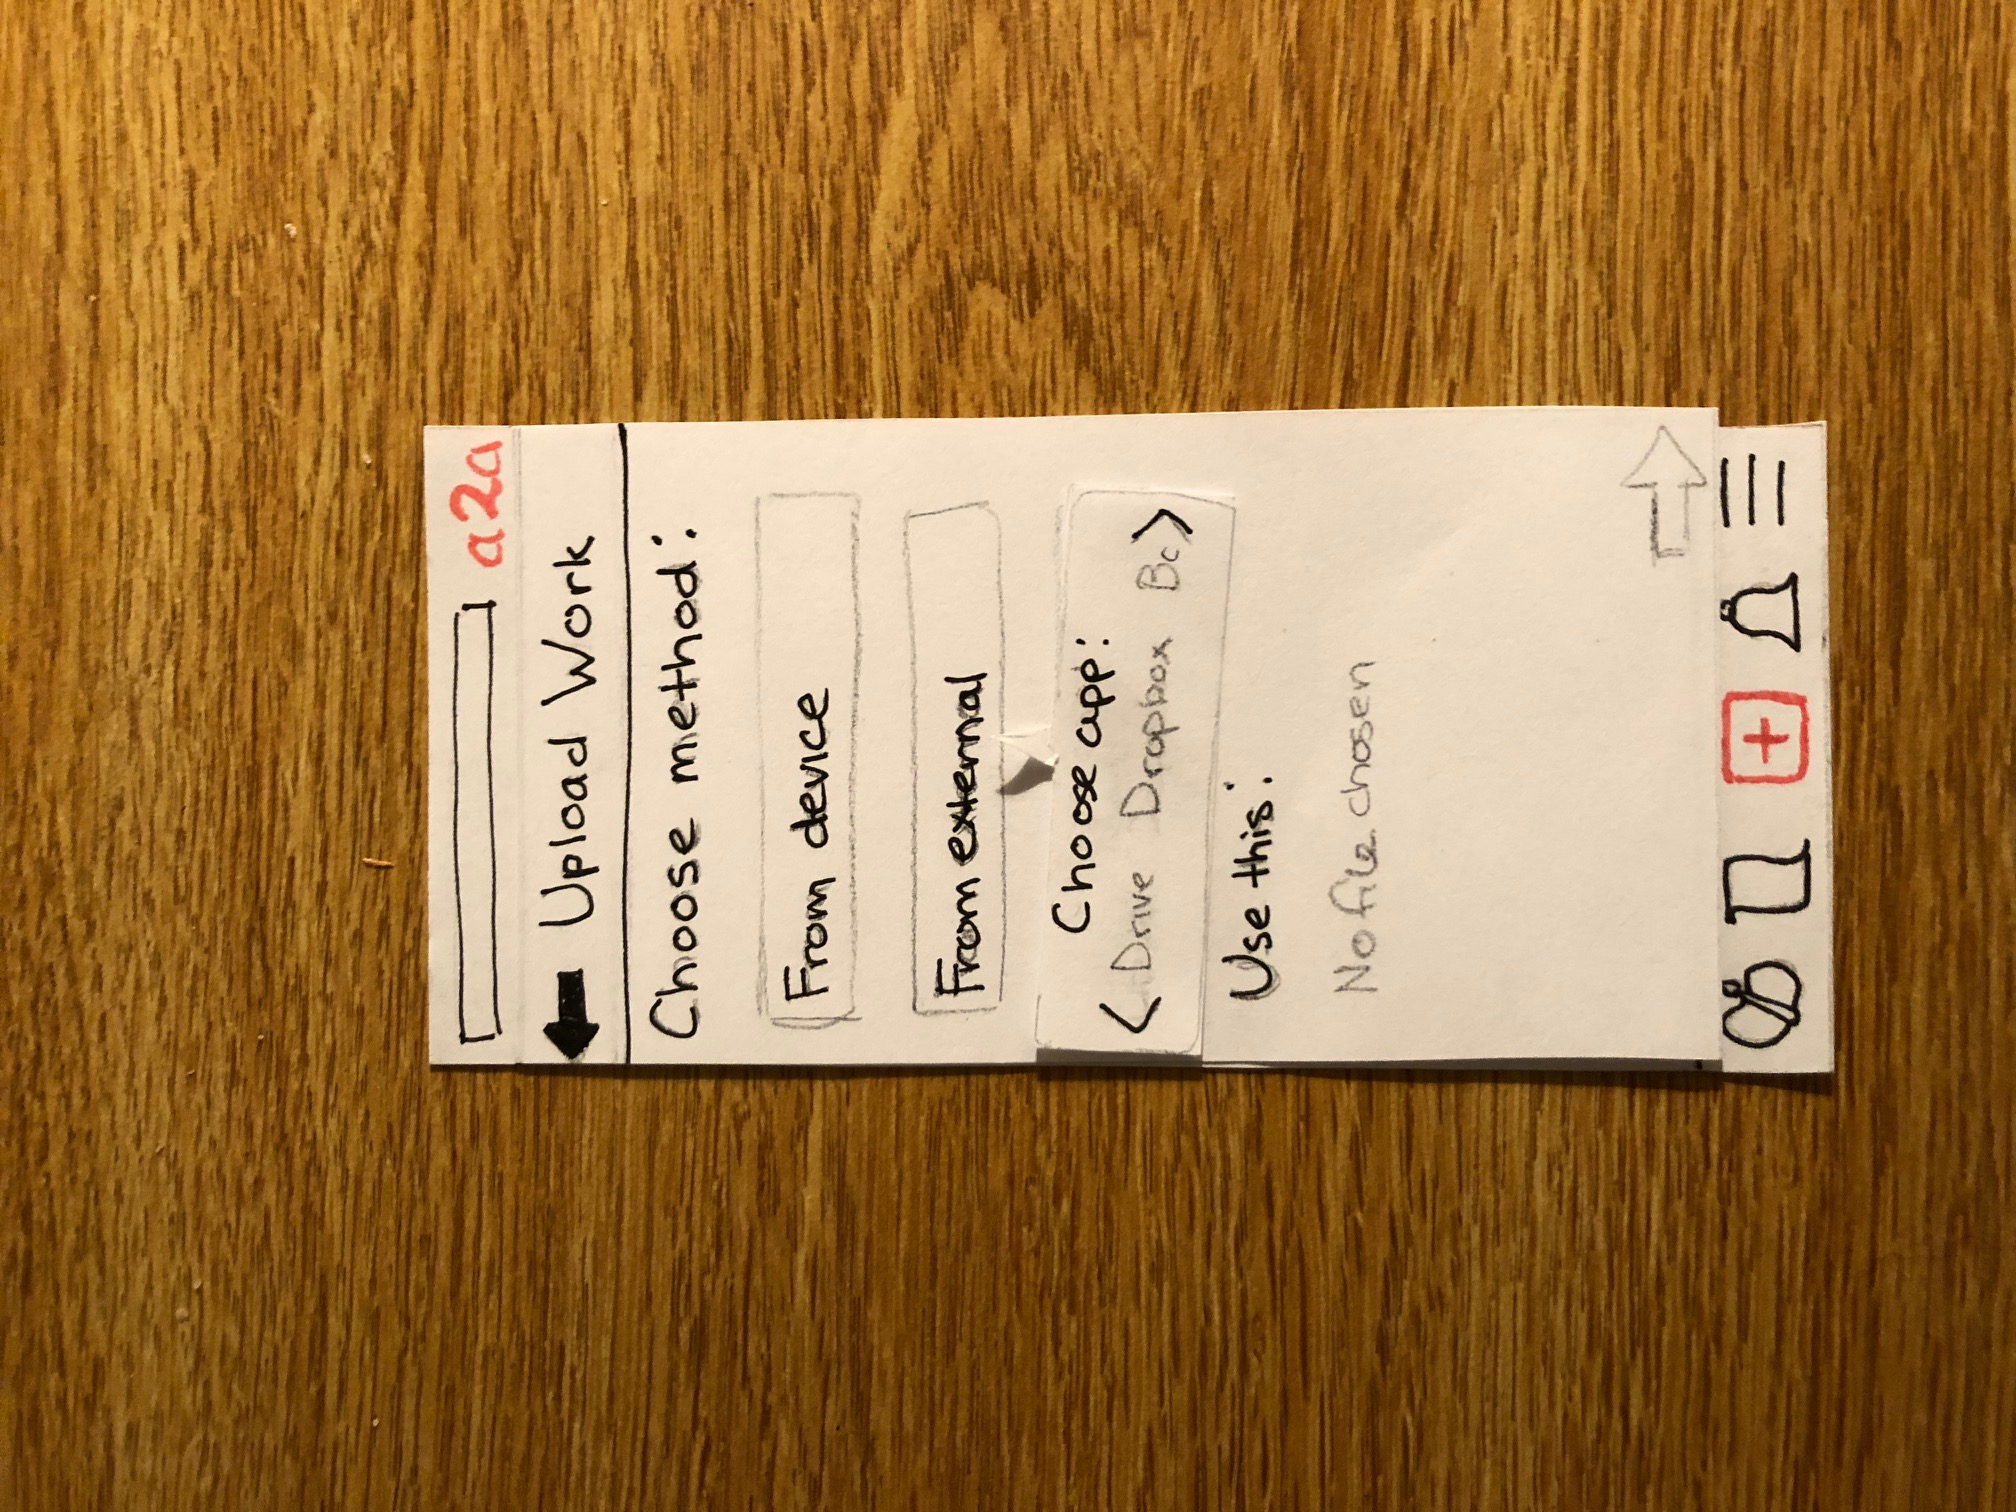 a2a
Upload Work
Choose method:
From device
From external
Choose app:
< Drive Dropbox Bc >
Use this:
No file chosen